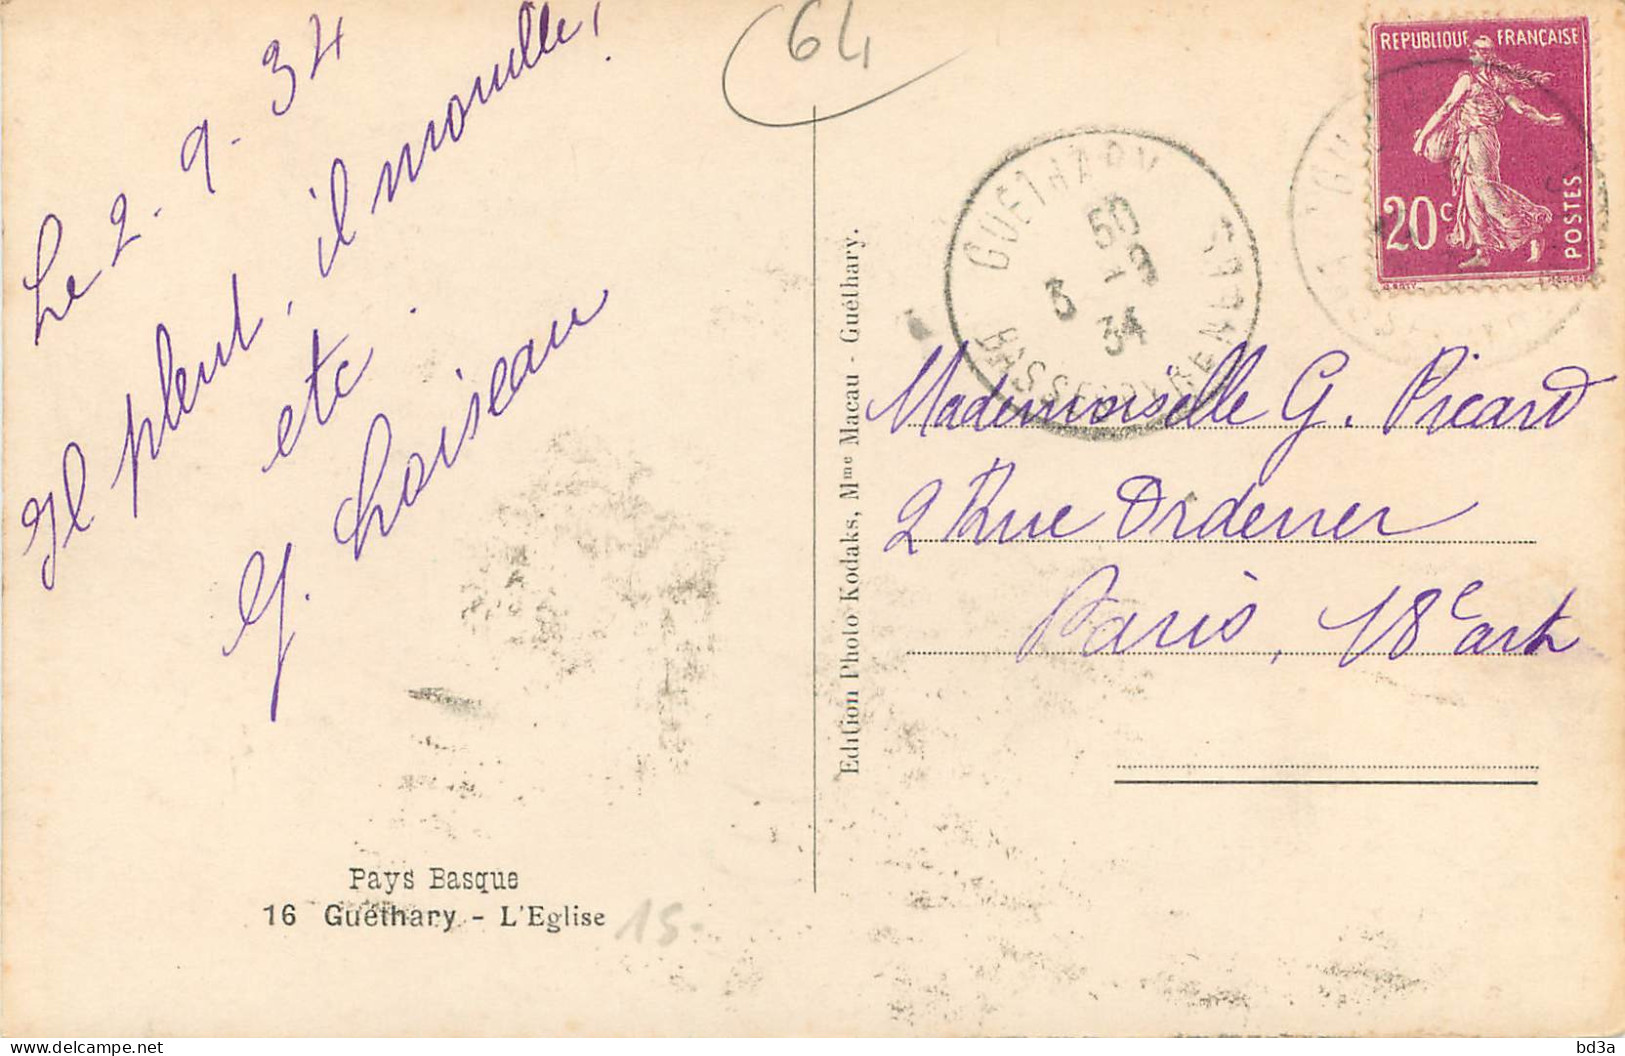 Le 2.9.34
Il pleut, il mouille,
etc.
G. Loiseau
Pays Basque
16 Guéthary - L'Eglise
15.
64
Edition Photo Kodaks, Mme Macau - Guéthary.
GUETHARY
BASSES PYRENEES
50
3 - 9
34
REPUBLIQUE FRANÇAISE
20c
POSTES
Mademoiselle G. Picard
2 Rue Ordener
Paris, 18e arrt
bd3a